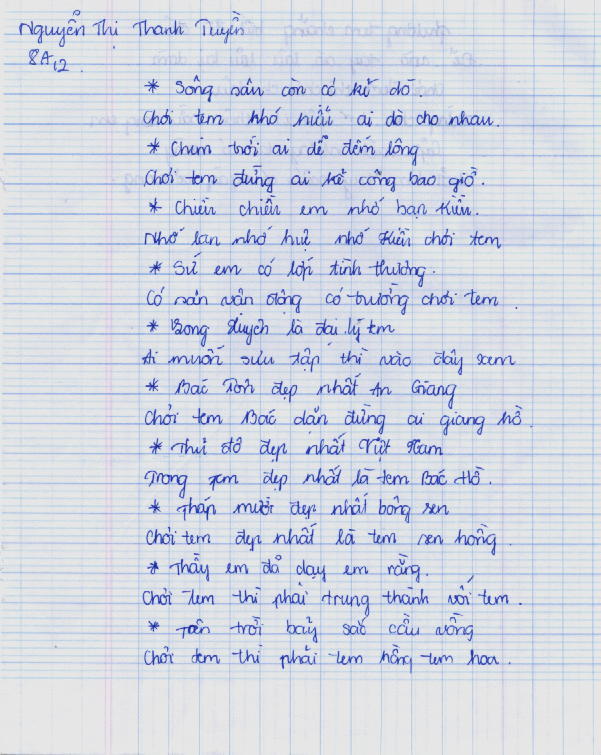 Nguyễn Thị Thanh Tuyền
8A12
* Sông sâu còn có kẻ dò
Chơi tem khó kiếm ai dò cho nhau.
* Chim trời ai dễ đếm lông
Chơi tem đừng ai kể công bao giờ.
* Chiều chiều em nhớ bạn Kiều.
Nhớ lan nhớ huệ nhớ Kiều chơi tem
* Sứ em có lớp tình thương.
Có sân vân động có trường chơi tem
* Bong Huych là đại lý tem
Ai muốn sưu tập thì vào đây xem
* Bác Tôn đẹp nhất An Giang
Chơi tem Bác dặn đừng ai giang hồ.
* Thủ đô đẹp nhất Việt Nam
Trong tem đẹp nhất là tem Bác Hồ.
* Tháp mười đẹp nhất bông sen
Chơi tem đẹp nhất là tem sen hồng.
* Thầy em đã dạy em rằng.
Chơi tem thì phải trung thành với tem.
* Trên trời bảy sắc cầu vồng
Chơi tem thì phải tem hồng tem hoa.